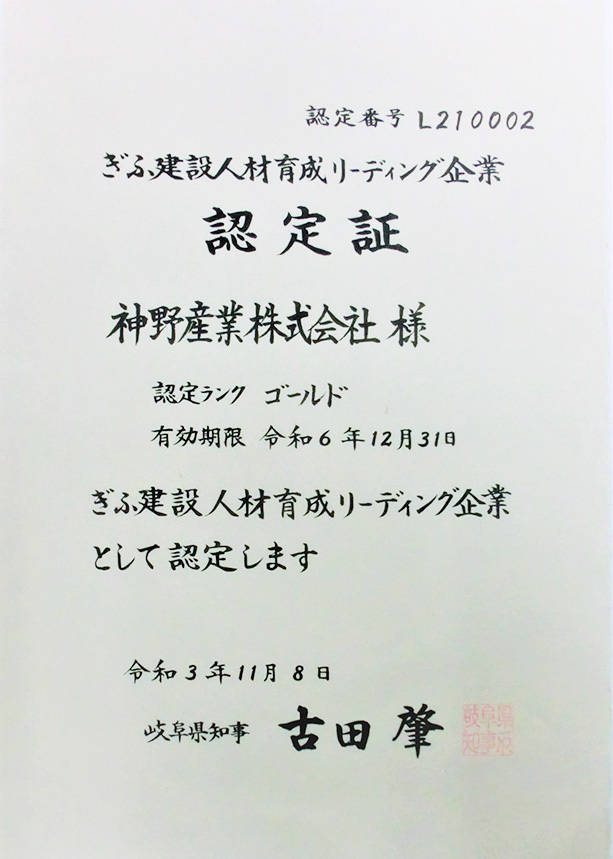 認定番号 L210002
ぎふ建設人材育成リーディング企業
認定証
神野産業株式会社 様
認定ランク ゴールド
有効期限 令和6年12月31日
ぎふ建設人材育成リーディング企業
として認定します
令和3年11月8日
岐阜県知事 古田 肇